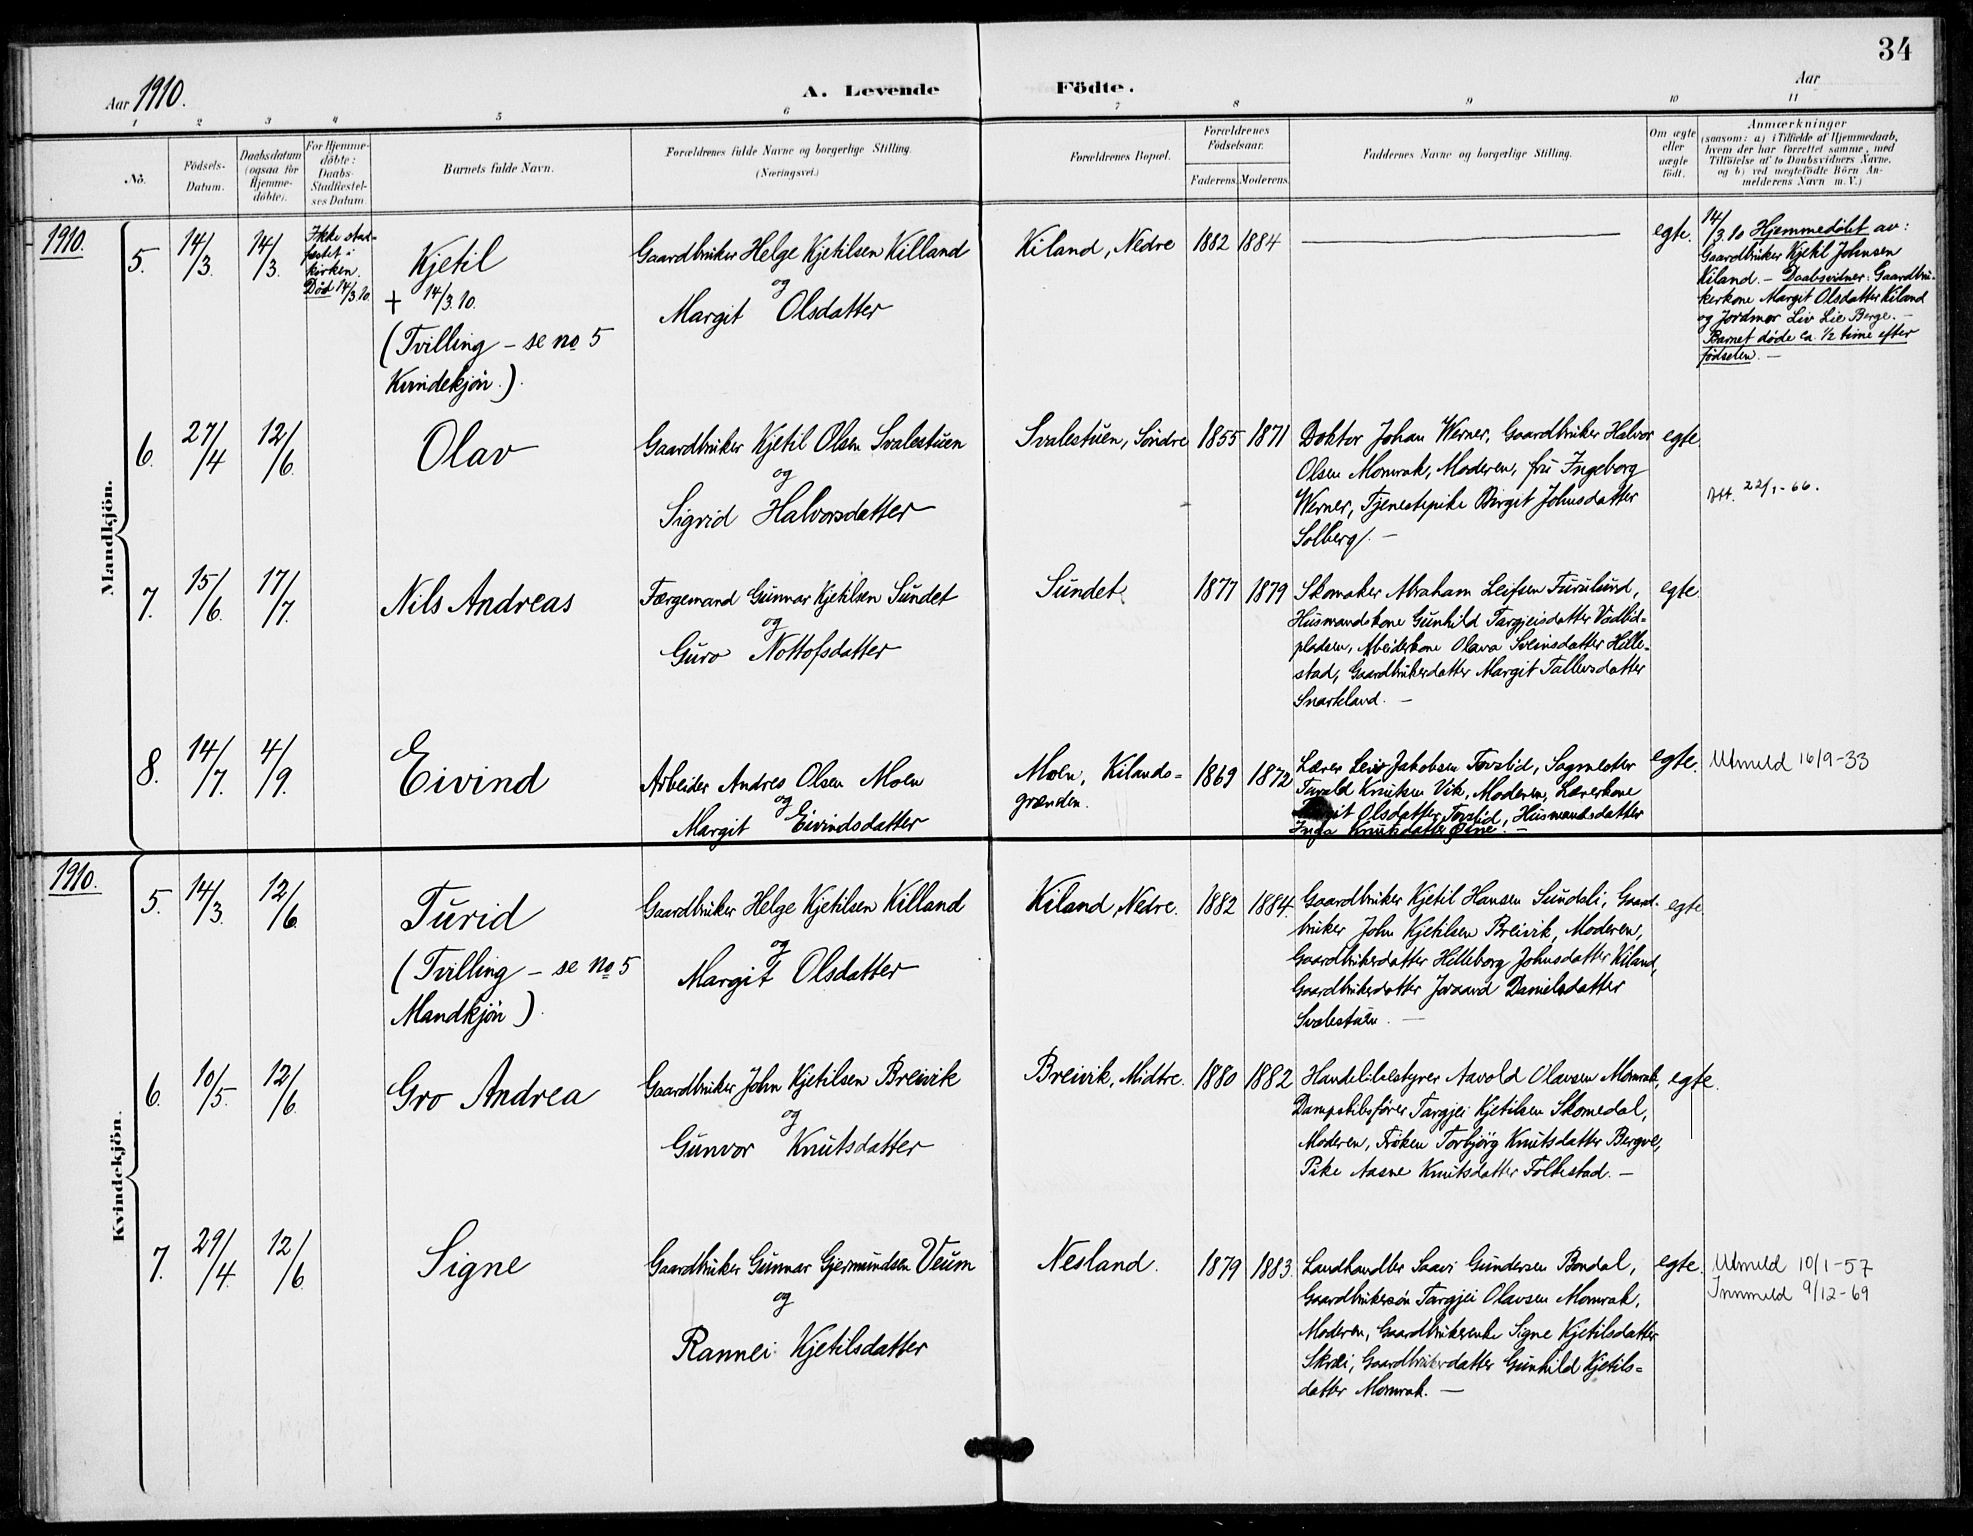 34
Aar 1910.
A. Levende Födte.
Aar
1 2 3 4 5 6 7 8 9 10 11
No.
Födsels-Datum.
Daabsdatum (ogsaa for Hjemme-döbte).
For Hjemme-döbte: Daabs-Stadfæstel-ses Datum
Barnets fulde Navn.
Forældrenes fulde Navne og borgerlige Stilling. (Næringsvei.)
Forældrenes Bopæl.
Forældrenes Födselsaar.
Faderens. Moderens.
Faddernes Navne og borgerlige Stilling.
Om ægte eller uægte födt.
Anmærkninger
(saasom: a) i Tilfælde af Hjemmedaab,
hvem der har forrettet samme, med
Tilföielse af to Daabsvidners Navne.
og b) ved uægtefödte Börn An-
melderens Navn m. V.)
Mandkjön.
1910.
5. 14/3. 14/3.
Ikke stad-
festet i
kirken.
Død 14/3 10.
Kjetil
+ 14/3 10.
(Tvilling – se no 5
Kvindekjön.).
Gaardbruker Helge Kjetilsen Killand
og
Margit Olsdatter
Kiland, Nedre 1882 1884
egte.
14/3 10 Hjemmedøbt av:
Gaardbruker Kjetil Johnsen
Kiland. – Daabsvidner: Gaardbru-
kerkone Margit Olsdatter Kiland
og Jordmor Liv Lie Berge. –
Barnet døde ca. 1/2 time efter
fødselen. –
6. 27/4 12/6.
Olav
Gaardbruker Kjetil Olsen Svalestuen
og
Sigrid Halvorsdatter
Svalestuen, Söndre 1855 1871
Doktor Johan Werner, Gaardbruker Halvor
Olsen Momrak, Moderen, fru Ingeborg
Werner, Tjenestepike Birgit Johnsdatter
Solberg. –
egte
22/1-66.
7. 15/6. 17/7.
Nils Andreas
Færgemand Gunnar Kjetilsen Sundet
og
Guro Nottofsdatter
Sundet. 1877 1879
Skomaker Abraham Leifsen Furulund,
Husmandskone Gunhild Targjeisdatter
Arbeiderkone Olava Sveinsdatter Hille-
stad, Gaardbrukerdatter Margit Tallevsdatter
Snartland. –
egte
8. 14/7. 4/9.
Eivind
Arbeider Andres Olsen Moen
og
Margit Eivindsdatter
Moen, Kilands-
grænden.
1869 1872
Lærer Leiv Jakobsen Tovslid, Sagmester
Tarald Knutsen Vik, Moderen, Lærerkone
Olsdatter Tovslid, Husmandsdatter
Inga Knutsdatter
egte.
Utmeld 16/9-33
Kvindekjön.
1910.
5. 14/3. 12/6.
Turid
(Tvilling – se no 5
Mandkjön).
Gaardbruker Helge Kjetilsen Killand
og
Margit Olsdatter
Kiland, Nedre. 1882 1884.
Gaardbruker Kjetil Hansen Sundali, Gaard-
bruker John Kjetilsen Breivik, Moderen,
Gaardbrukerdatter Hilleborg Johnsdatter Kiland,
Gaardbrukerdatter Joraand Danielsdatter
Svalestuen. –
egte
6. 10/5. 12/6.
Gro Andrea
Gaardbruker John Kjetilsen Breivik
og
Gunvor Knutsdatter
Breivik, Midtre. 1880 1882
Handelsbestyrer Aavold Olavsen Momrak,
Dampskibsfører Targjei Kjetilsen Skomedal,
Moderen, Frøken Torbjörg Knutsdatter Bergve,
Pike Aasne Knutsdatter Folkestad. –
egte.
7. 29/4. 12/6.
Signe
Gaardbruker Gunnar Gjermundsen Veum
og
Rannei Kjetilsdatter
Nesland. 1879 1883.
Landhandler Saavi Gundersen Bondal,
Gaardbrukersön Targjei Olavsen Momrak,
Moderen, Gaardbrukerenke Signe Kjetilsdatter
Skrei, Gaardbrukerdatter Gunhild Kjetils-
datter Momrak. –
egte.
Utmeld 10/1-57
Innmeld 9/12-69